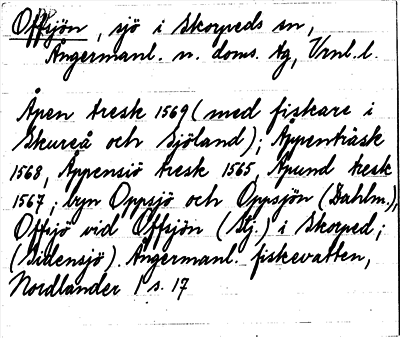 Offsjön, sjö i Skorpeds sn,
Ångermanl. n. doms. tg, Vrnl. l.
Åpen tresk 1569 (med fiskare i
Skureå och Sjöland); Äppenträsk
1568, Äppensiö tresk 1565, Apund tresk
1567; byn Oppsjö och Oppsjön (Dahlm.),
Offsjö vid Offsjön (Stj.) i Skorped;
(Sidensjö). Ångermanl. fiskevatten,
Nordlander 1 s. 17